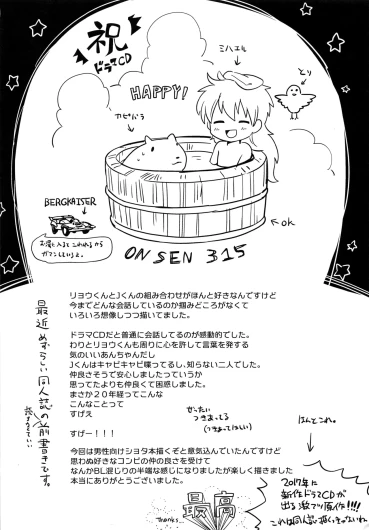 祝
ドラマCD
HAPPY!
ミハエル
とり
カピバラ
BERGKAISER
お湯に入るとこわれるから
ガマンしているよ。
OK
ONSEN 315
最近めずらしい同人誌の前書きです。
読まなくていい
リョウくんとJくんの組み合わせがほんと好きなんですけど
今までどんな会話しているのか掴みどころがなくて
いろいろ想像しつつ描いてました。
ドラマCDだと普通に会話してるのが感動的でした。
わりとリョウくんも周りに心を許して言葉を発する
気のいいあんちゃんだし
Jくんはキャピキャピ喋ってるし、知らない二人でした。
仲良さそうで安心しましたっていうか
思ってたよりも仲良くて困惑しました。
まさか20年経ってこんな
こんなことって
すげえ
すげー！！！
ぜったい
つきあってる
(つきあってほしい)
今回は男性向けショタ本描くぞと意気込んでいたんですけど
思わぬ好きなコンビの仲の良さを受けて
なんかBL混じりの半端な感じになりましたが楽しく描きました
本当にありがとうございました。
ほんとこれ。
2017年に
新作ドラマCDが
出る激マブ原作!!!!
これは同人誌描くっきゃないね
Thanks
最高